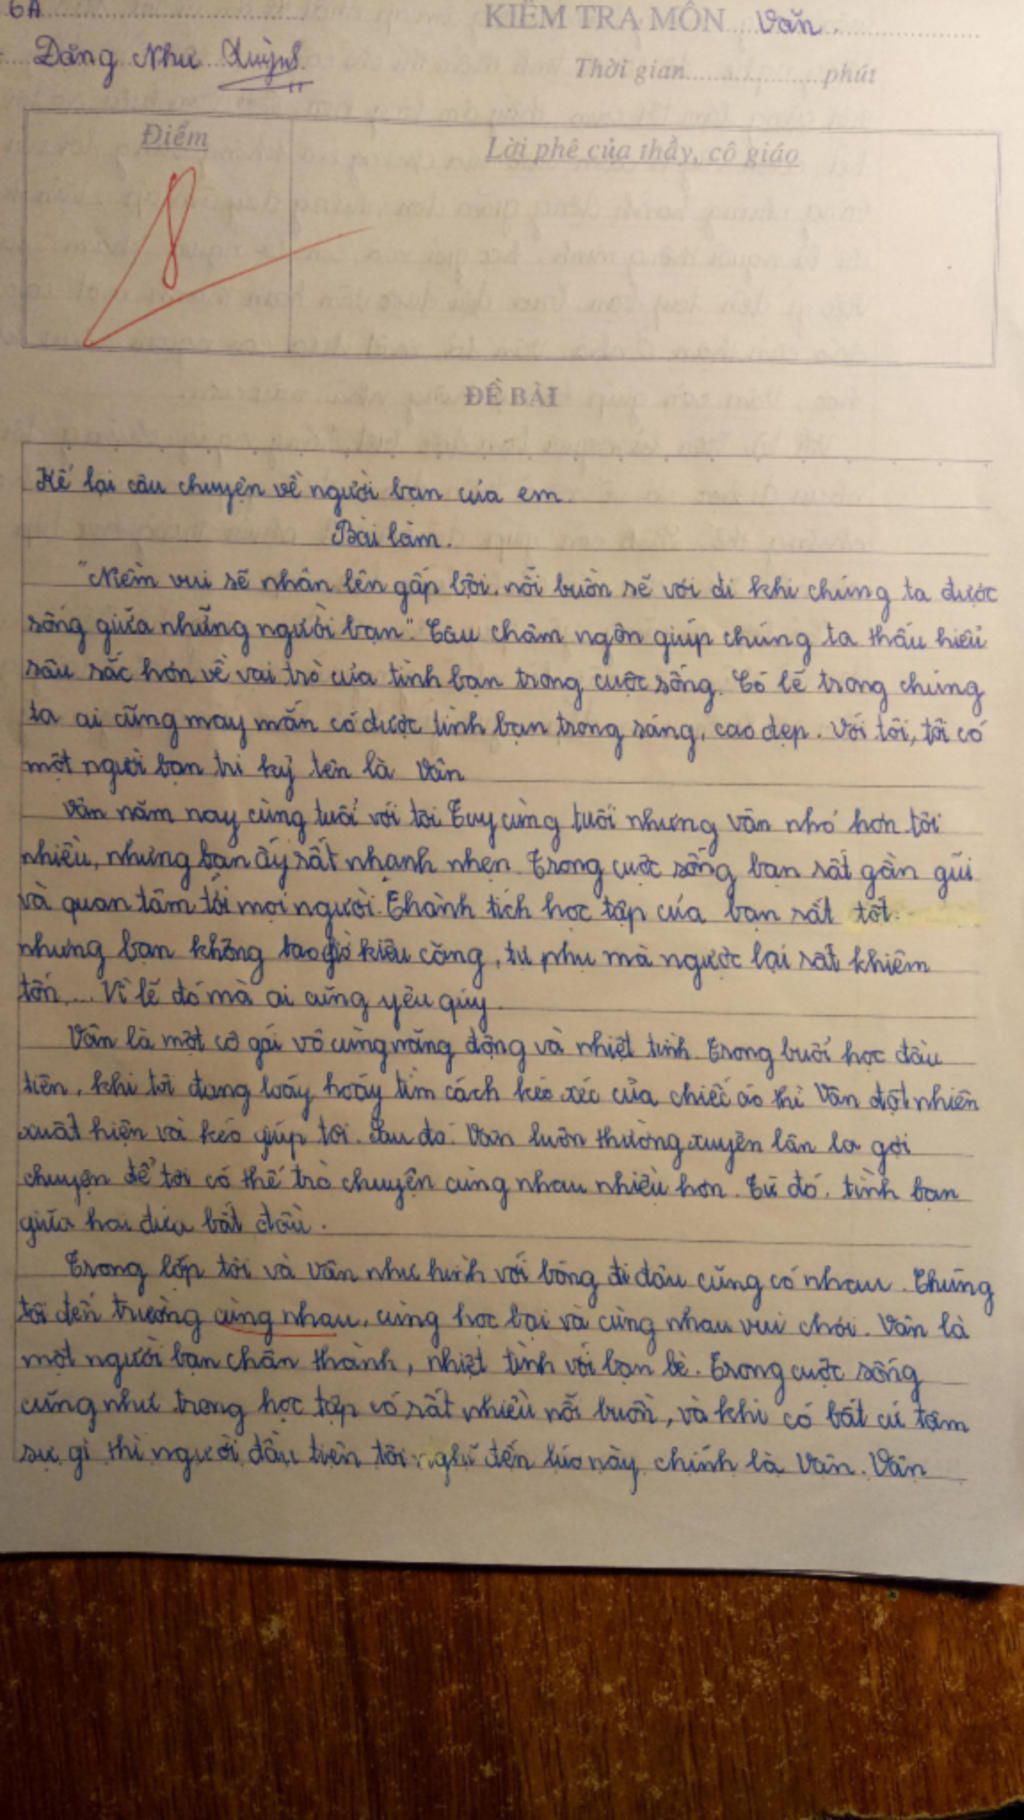 6A
KIỂM TRA MÔN Văn.
Đăng Như Quỳnh
Thời gian.............phút
Điểm
Lời phê của thầy, cô giáo
8
ĐỀ BÀI
Kể lại câu chuyện về người bạn của em.
Bài làm.
"Niềm vui sẽ nhân lên gấp bội, nỗi buồn sẽ vơi đi khi chúng ta được
sống giữa những người bạn". Câu châm ngôn giúp chúng ta thấu hiểu
sâu sắc hơn về vai trò của tình bạn trong cuộc sống. Có lẽ trong chúng
ta ai cũng may mắn có được tình bạn trong sáng, cao đẹp. Với tôi, tôi có
một người bạn tri kỷ tên là Vân
Vân năm nay cùng tuổi với tôi. Tuy cùng tuổi nhưng Vân nhỏ hơn tôi
nhiều, nhưng bạn ấy rất nhanh nhẹn. Trong cuộc sống bạn rất gần gũi
và quan tâm tới mọi người. Thành tích học tập của bạn rất tốt
nhưng bạn không bao giờ kiêu căng, tự phụ mà ngược lại rất khiêm
tốn,... Vì lẽ đó mà ai cũng yêu quý.
Vân là một cô gái vô cùng năng động và nhiệt tình. Trong buổi học đầu
tiên, khi tôi đang loáy hoáy tìm cách kéo xéc của chiếc áo thì Vân đột nhiên
xuất hiện và kéo giúp tôi. Sau đó Vân luôn thường xuyên lân la gợi
chuyện để tôi có thể trò chuyện cùng nhau nhiều hơn. Từ đó, tình bạn
giữa hai đứa bắt đầu.
Trong lớp tôi và Vân như hình với bóng đi đâu cũng có nhau. Chúng
tôi đến trường cùng nhau, cùng học bài và cùng nhau vui chơi. Vân là
một người bạn chân thành, nhiệt tình với bạn bè. Trong cuộc sống
cũng như trong học tập có rất nhiều nỗi buồn, và khi có bất cứ tâm
sự gì thì người đầu tiên tôi nghĩ đến lúc này chính là Vân. Vân